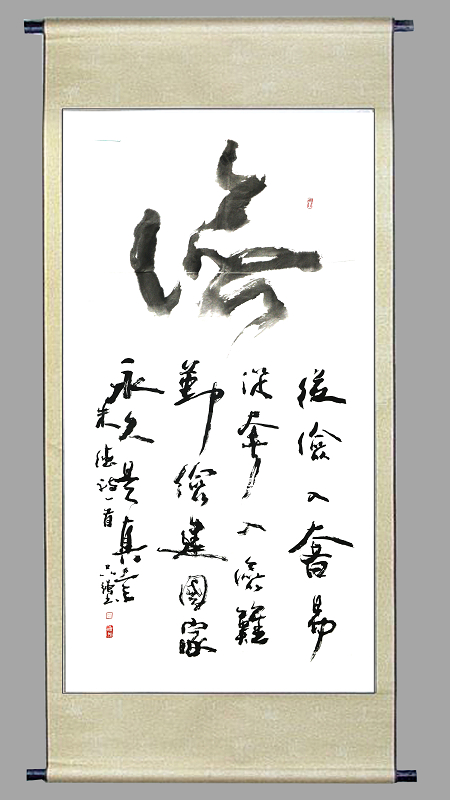 儉
從儉入奢易
從奢入儉難
勤儉建國家
永久是真詮
朱德詩一首